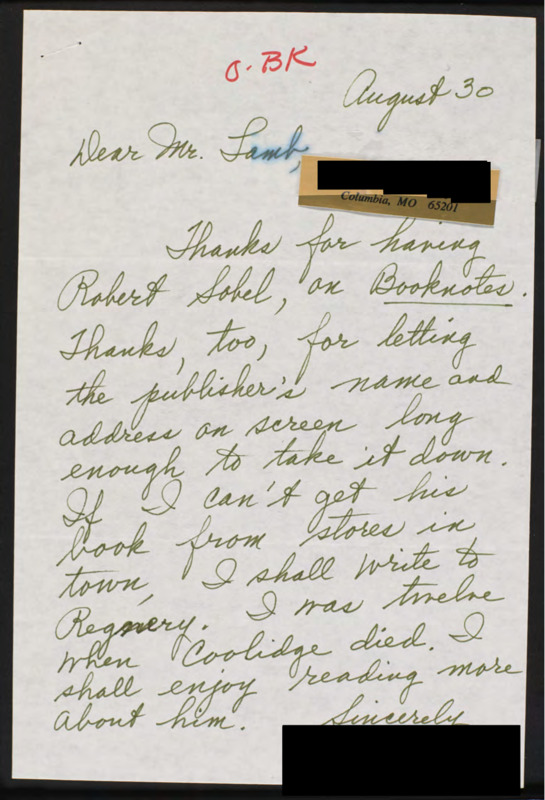 O-BK
August 30
Dear Mr. Lamb,
Columbia, MO 65201
Thanks for having
Robert Sobel, on Booknotes.
Thanks, too, for letting
the publisher's name and
address on screen long
enough to take it down.
If I can't get his
book from stores in
town, I shall write to
Regnery. I was twelve
when Coolidge died. I
shall enjoy reading more
about him. Sincerely